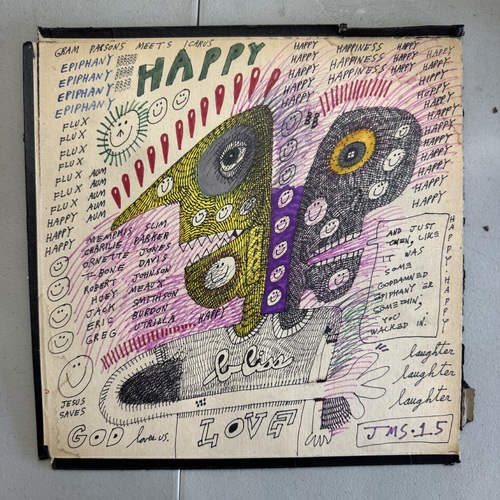 GRAM PARSONS MEETS ICARUS
HAPPY
EPIPHANY
EPIPHANY
EPIPHANY
EPIPHANY
FLUX
FLUX
FLUX
FLUX
FLUX AUM
FLUX AUM
FLUX AUM
HAPPY AUM
HAPPY
HAPPY
HAPPY
HAPPY
HAPPY
HAPPY
HAPPINESS HAPPY
HAPPINESS HAPPY
HAPPINESS HAPPY
HAPPY
HAPPY
HAPPY
HAPPY
HAPPY
HAPPY
HAPPY
HAPPY
HAPPY
MEMPHIS SLIM
CHARLIE PARKER
ORNETTE JONES
T-BONE DAVIS
ROBERT JOHNSON
HUEY MEAUX
JACK SMITHSON
ERIC BURDON
GREG UTRILLA HAPPY
AND JUST
THEN, LIKE
IT WAS
SOME
GODDAMNED
EPIPHANY ER
SOMETHIN,
YOU
WALKED IN.
HAPPY·HAPPY
bliss
laughter
laughter
laughter
JESUS
SAVES
GOD loves us.
LOVE
JMS·15